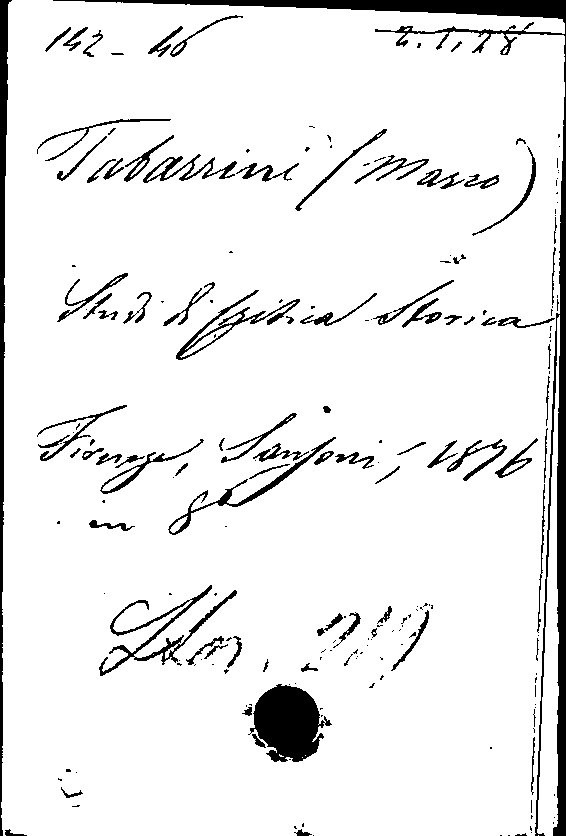 142 - 46 2.1.28
Tabarrini (Marco)
Studi di Critica Storica
Firenze, Sansoni, 1876
in 8°
Stor. 219